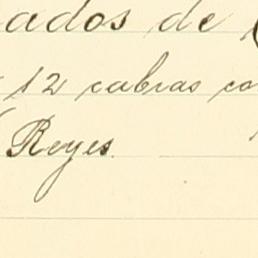 ados de
12 cabras co
Reyes.